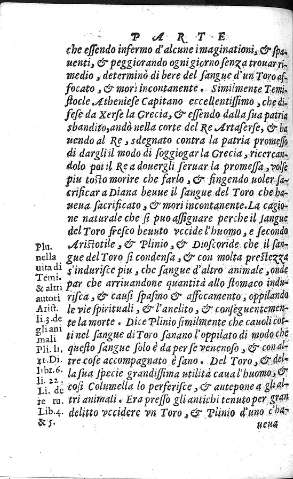 PARTE
che essendo infermo d'alcune imaginationi, & spa
uenti, & peggiorando ogni giorno senza trouar ri
medio, determinò di bere del sangue d'un Toro af
focato, & morì incontanente. Similmente Temi
stocle Atheniese Capitano eccellentissimo, che di
fese da Xerse la Grecia, & essendo dalla sua patria
sbandito, andò nella corte del Re Artaserse, & ha
uendo al Re, sdegnato contra la patria promesso
di dargli il modo di soggiogar la Grecia, ricercan-
dolo poi il Re a douergli seruar la promessa, volse
piu tosto morire che farlo, & fingendo voler sa-
crificar a Diana beuue il sangue del Toro che ha-
ueua sacrificato, & morì incontanente. La cagio
ne naturale che si può assignare perche il sangue
del Toro fresco beuuto vccide l'huomo, e secondo
Aristotile, & Plinio, & Dioscoride che il san-
gue del Toro si condensa, & con molta prestezza
s'indurisce piu, che sangue d'altro animale, onde
par che arriuandone quantità allo stomaco indu
risca, & causi spasmo & affocamento, oppilando
le vie spirituali, & l'anelito, & conseguentemen-
te la morte. Dice Plinio similmente che i cauoli cot
ti nel sangue di Toro sanano l'oppilato di modo che
questo sangue solo è da per se venenoso, & con al-
tre cose accompagnato è sano. Del Toro, & del-
la sua specie grandissima utilità caua l'huomo, &
così Columella lo perferisce, & antepone a gli al-
tri animali. Era presso gli antichi tenuto per gran
delitto vccidere vn Toro, & Plinio d'uno c'ha-
ueua
Plu.
nella
uita di
Temi.
& altri
autori
Arist.
li. 3. de
gli ani
mali
Pli. li.
21. D i.
libr. 6.
li. 22.
Li. de
re ru.
Lib. 4.
& 5.